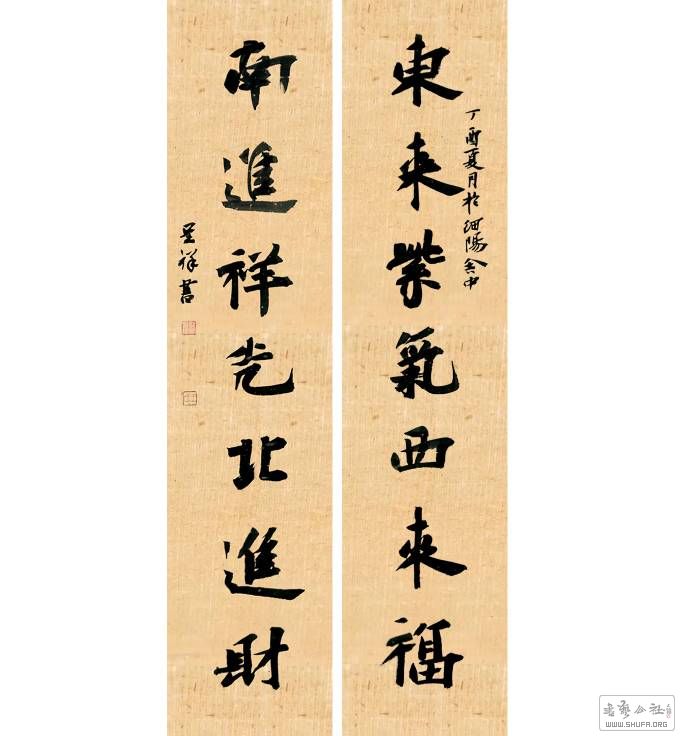 東来紫氣西来福
丁酉夏月於細陽舍中
南進祥光北進財
祥書
WWW.SHUFA.ORG